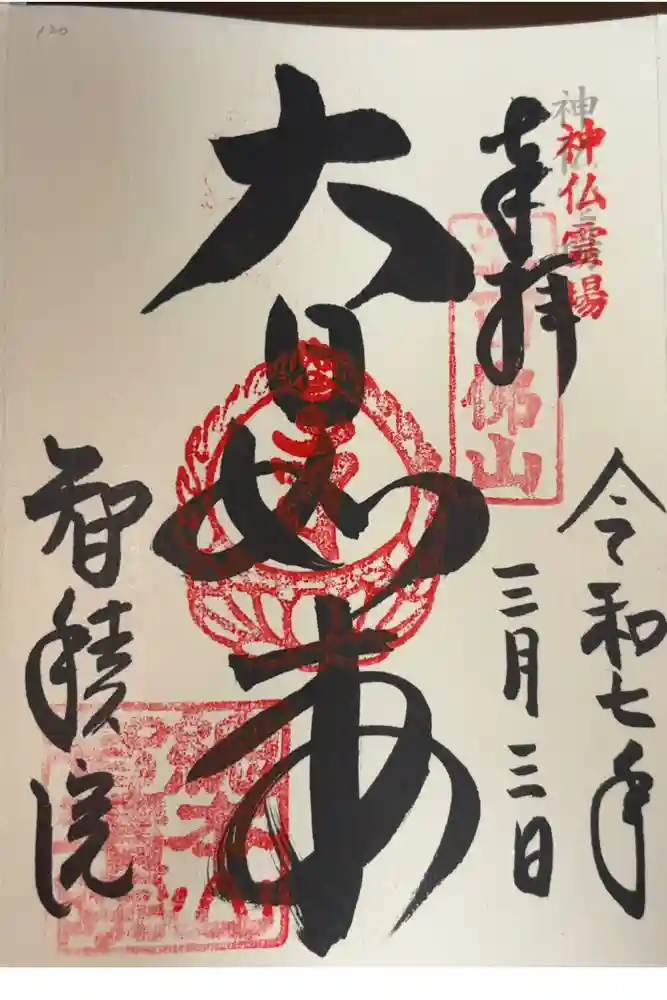 神仏霊場
奉拝
令和七年
三月三日
大日如来
智積院
120